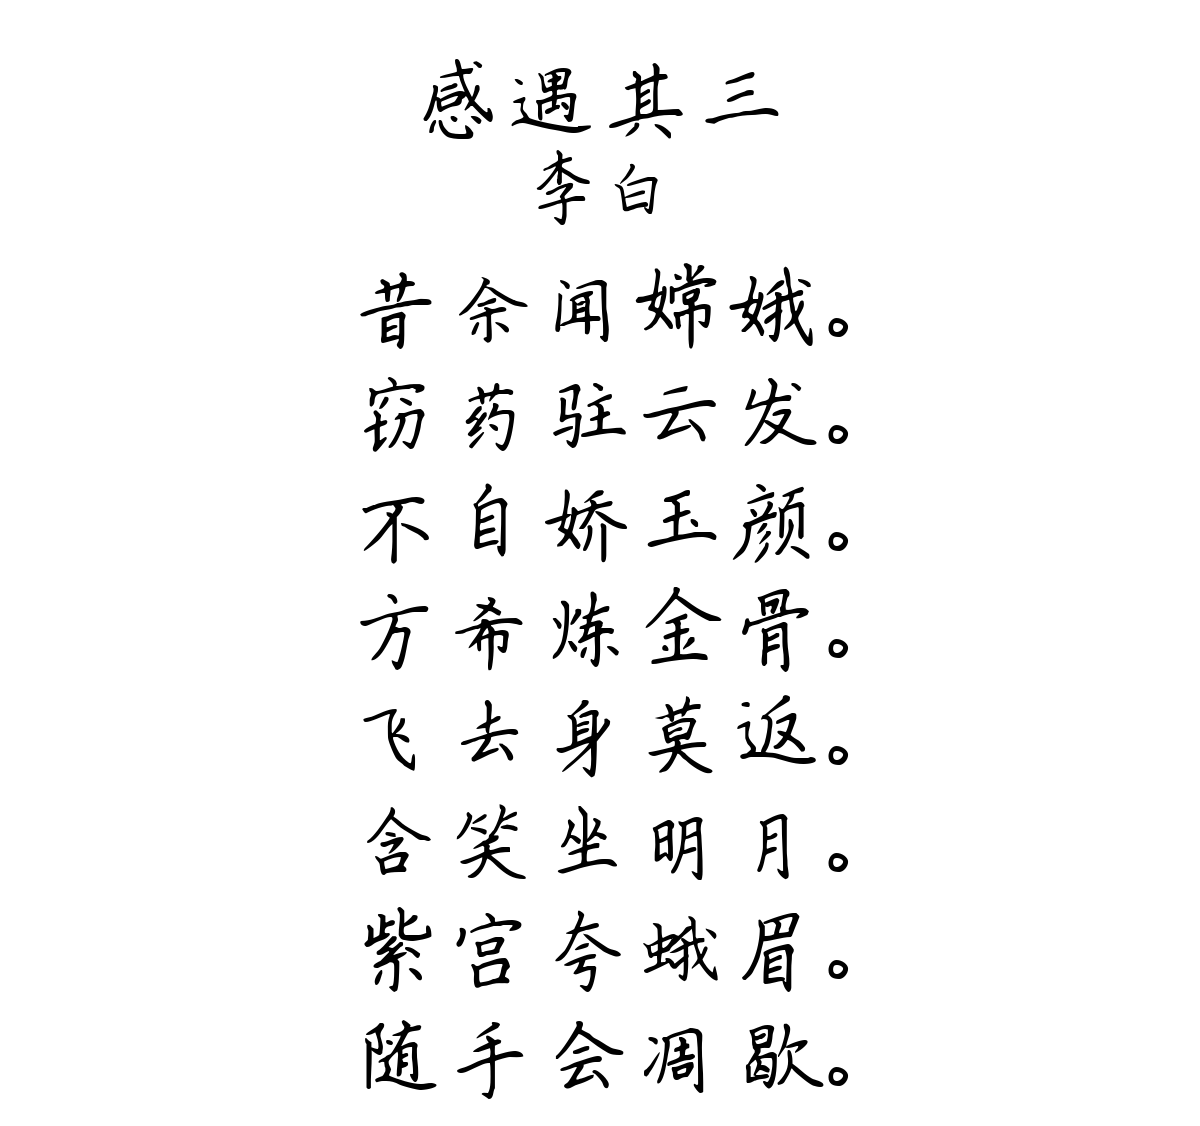 感遇其三
李白
昔余闻嫦娥。
窃药驻云发。
不自娇玉颜。
方希炼金骨。
飞去身莫返。
含笑坐明月。
紫宫夸蛾眉。
随手会凋歇。